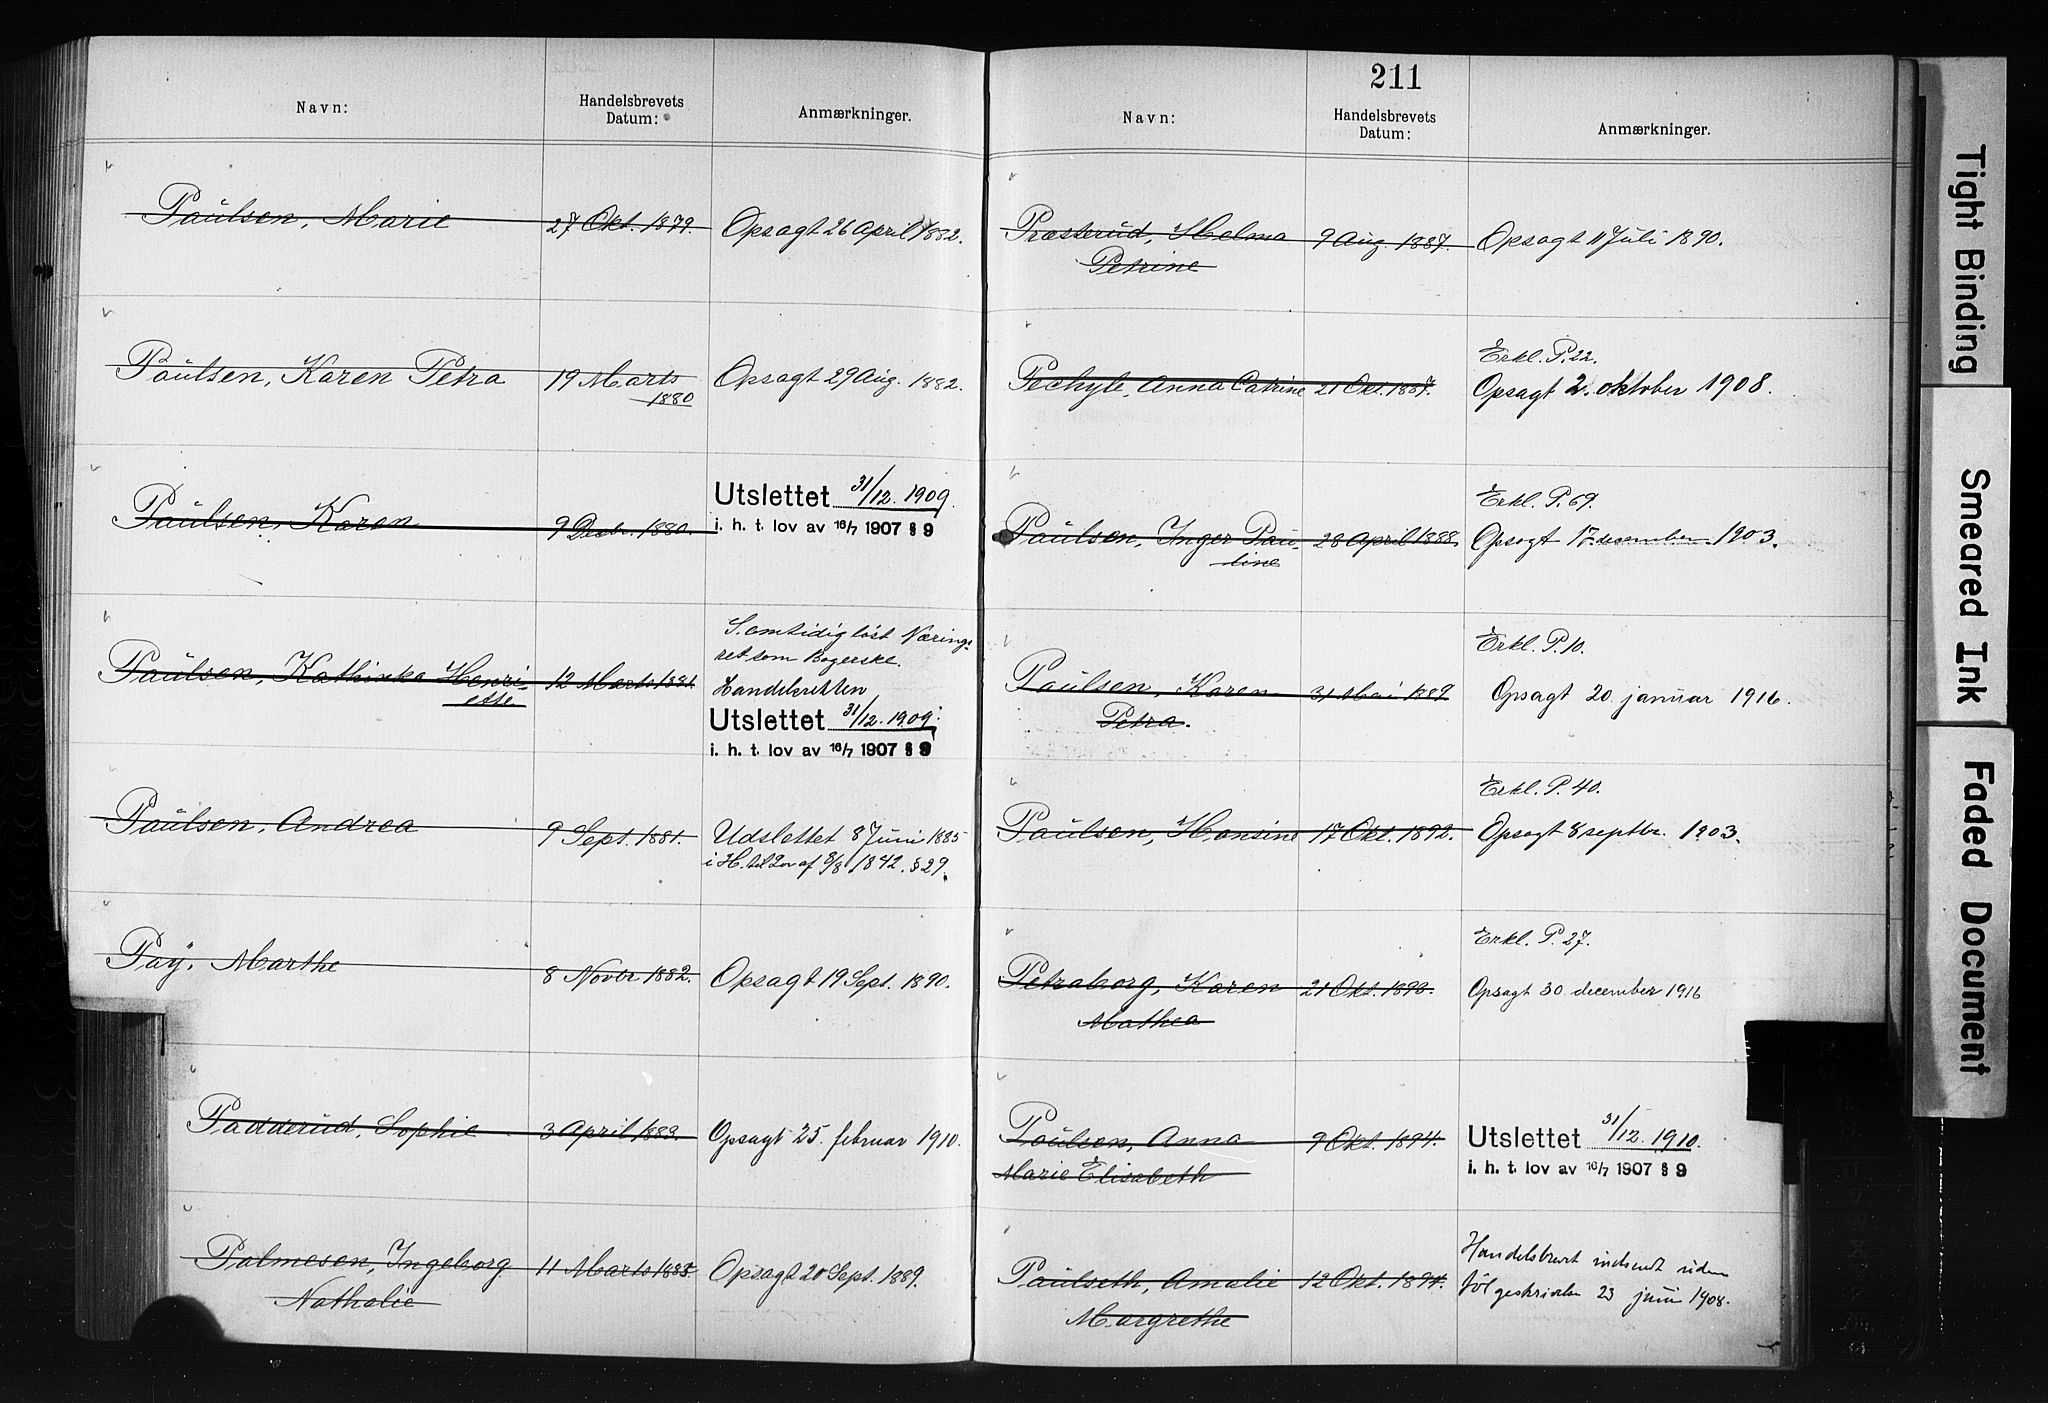 Navn:
Handelsbrevets
Datum:
Anmærkninger.
Paulsen, Marie
27 Okt. 1879.
Opsagt 26 April 1882.
Paulsen, Karen Petra
19 Marts
1880
Opsagt 29 Aug. 1882.
Paulsen, Karen
9 Decbr. 1880.
Utslettet 31/12. 1909.
i. h. t. lov av 16/7 1907 § 9
Paulsen, Kathinka Henri-
ette
12 Marts 1881
Samtidig løst Nærings-
ret som Bagerske.
Handelsretten
Utslettet 31/12. 1909.
i. h. t. lov av 16/7 1907 § 9
Paulsen, Andrea
9 Sept. 1881.
Udslettet 8 Juni 1885
i H. til Lov af 8/8 1842. § 29.
Pay, Marthe
8 Novbr 1882.
Opsagt 19 Sept. 1890.
Padderud, Sophie
3 April 1883.
Opsagt 25. februar 1910.
Palmesen, Ingeborg
Nathalie
11 Marts 1885.
Opsagt 20 Sept. 1889.
211
Navn:
Handelsbrevets
Datum:
Anmærkninger.
Præsterud, Helma
Petrine
9 Aug. 1887.
Opsagt 11 Juli 1890.
Pechyle, Anna Catrine
21 Okt. 1887.
Erkl. P. 22.
Opsagt 2. oktober 1908.
Paulsen, Inger Pau-
line
28 April 1888.
Erkl. P. 69.
Opsagt 17 desember 1903.
Paulsen, Karen
Petra.
31 Mai 1889
Erkl. P. 10.
Opsagt 20. januar 1916.
Paulsen, Hansine
17 Okt. 1892.
Erkl. P. 40.
Opsagt 8 septbr. 1903.
Petraborg, Karen
Mathea
21 Okt. 1893.
Erkl. P. 27.
Opsagt 30 december 1916
Paulsen, Anna
Marie Elisabeth
9 Okt. 1894.
Utslettet 31/12. 1910.
i. h. t. lov av 16/7 1907 § 9
Paulseth, Amalie
Margrethe
12 Okt. 1894.
Handelsbrevet indsendt uden
følgeskrivelse 23 juni 1908.
Tight Binding
Smeared Ink
Faded Document